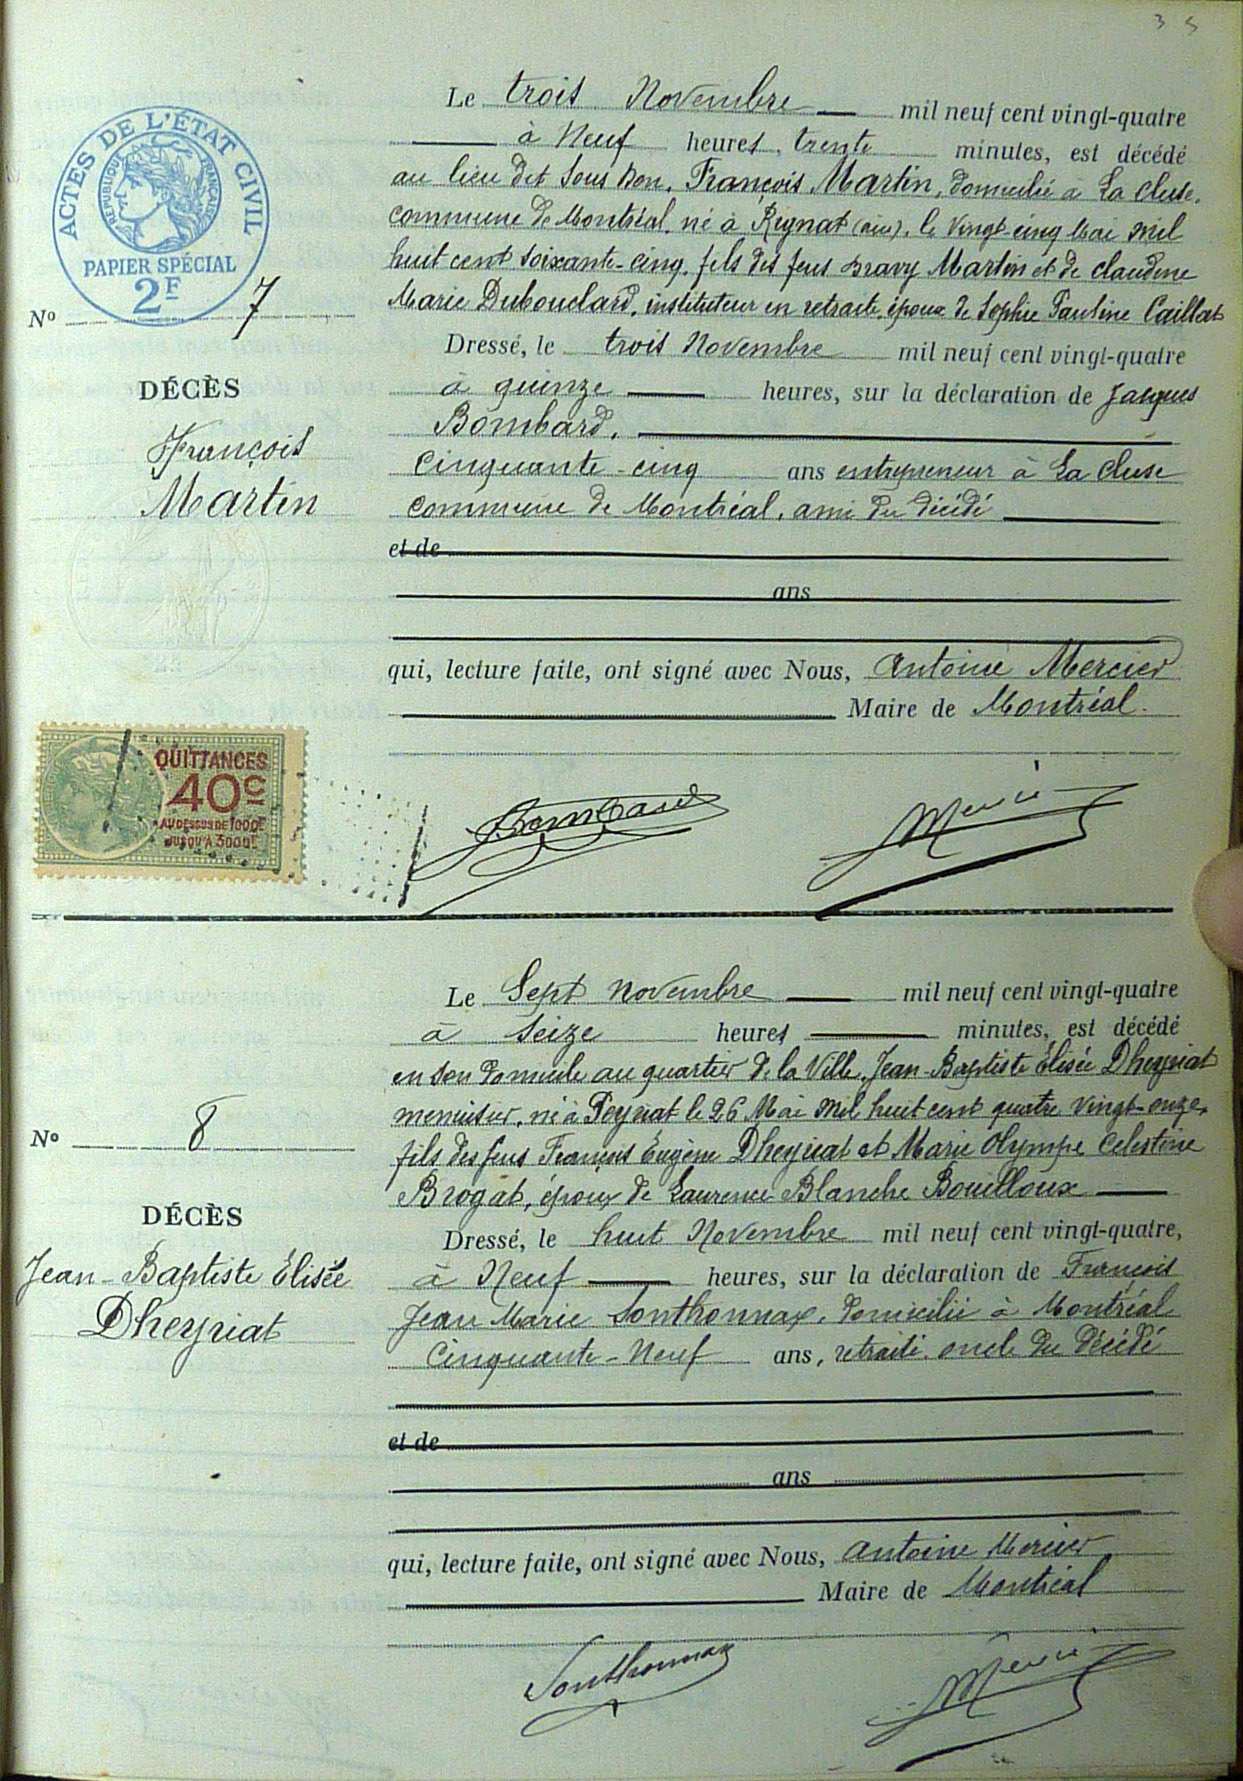 3 5
ACTES DE L'ÉTAT CIVIL
RÉPUBLIQUE FRANÇAISE
PAPIER SPÉCIAL
2F
Le trois Novembre mil neuf cent vingt-quatre
à Neuf heures, trente minutes, est décédé
au lieu dit Sous Bon, François Martin, domicilié à La Cluse,
commune de Montréal, né à Rignat (Ain), le Vingt-cinq Mai mil
huit cent soixante-cinq, fils des feus Dravy Martin et de Claudine
Marie Dubouclard, instituteur en retraite, époux de Sophie Pauline Caillat
Nº 7
DÉCÈS
François
Martin
Dressé, le trois Novembre mil neuf cent vingt-quatre
à quinze heures, sur la déclaration de Jacques
Bombard,
Cinquante-cinq ans entrepreneur à La Cluse
commune de Montréal, ami du décédé
et de
ans
qui, lecture faite, ont signé avec Nous, Antoine Mercier
Maire de Montréal.
QUITTANCES
40c
AU DESSUS DE 1000F
JUSQU'À 3000F
Bombard
Mercier
Le Sept Novembre mil neuf cent vingt-quatre
à Seize heures minutes, est décédé
en son domicile au quartier de la Ville, Jean-Baptiste Élisée Dheyriat
menuisier, né à Peyriat le 26 Mai Mil huit cent quatre vingt-onze,
fils des feus François Eugène Dheyriat et Marie Olympe Celestine
Brogat, époux de Laurence Blanche Bouilloux
Nº 8
DÉCÈS
Jean-Baptiste Élisée
Dheyriat
Dressé, le huit Novembre mil neuf cent vingt-quatre,
à Neuf heures, sur la déclaration de François
Jean Marie Sonthonnax, domicilié à Montréal
Cinquante-Neuf ans, retraité, oncle du décédé
et de
ans
qui, lecture faite, ont signé avec Nous, Antoine Mercier
Maire de Montréal
Sonthonnax
Mercier